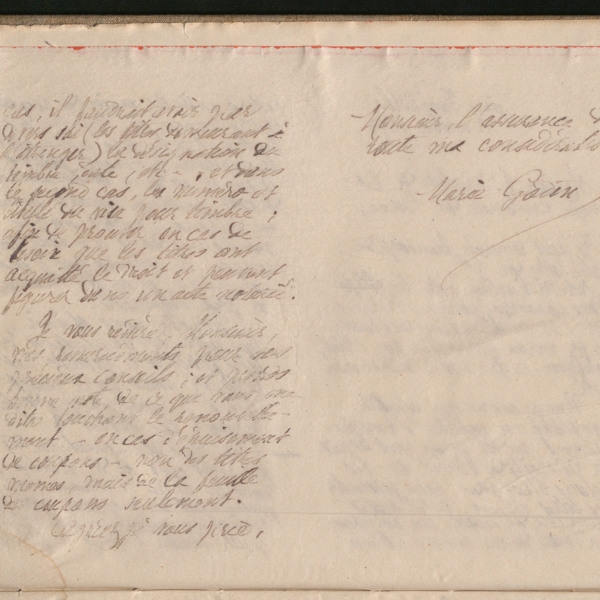 cas, il faudrait avoir par
devers soi (les titres demeurant à
l'étranger) la désignation du
timbre, cote, etc -, et dans
le second cas, les numéro et
du visa pour timbre ;
afin de prouver en cas de
besoin que les titres ont
acquitté le droit et peuvent
figurer dans un acte notarié.
Je vous réitère, Monsieur,
mes remerciements pour vos
précieux conseils ; et prends
bonne note de ce que vous me
dites touchant le renouvelle-
ment - en cas d'épuisement
de coupons - non des titres
mêmes, mais de la feuille
de coupons seulement.
Agréez je vous prie,
Monsieur, l'assurance de
toute ma considération
Marie